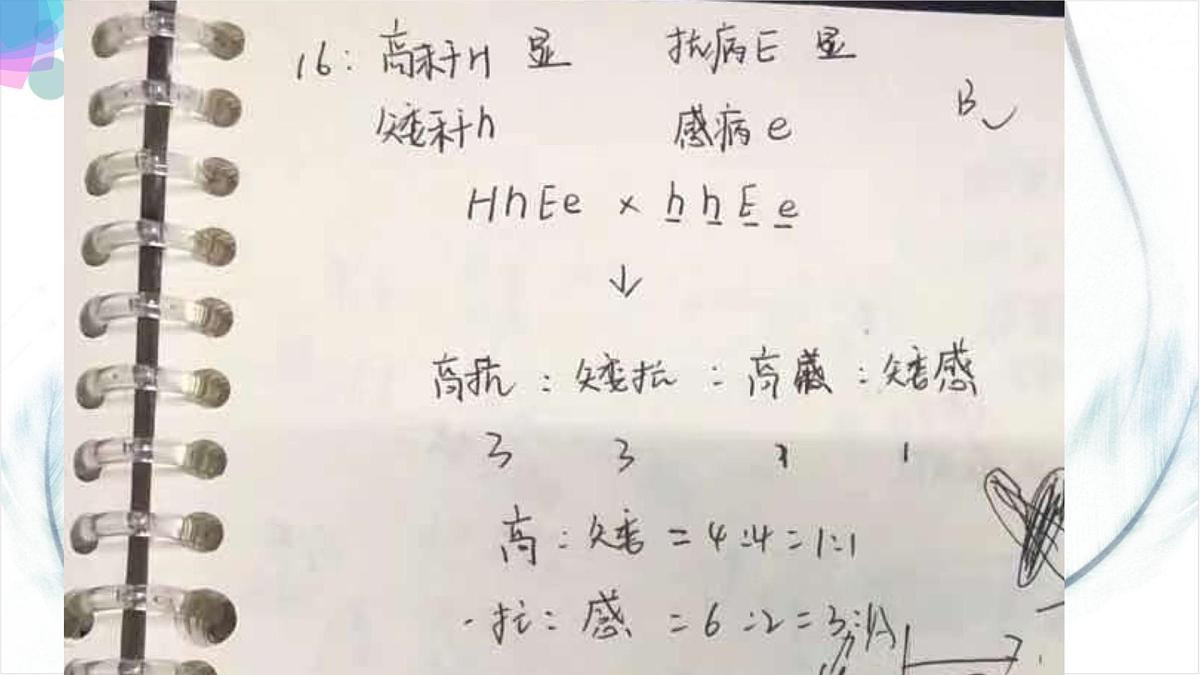 16: 高秆H 显 抗病E 显
矮秆h 感病e B
HhEe × hhEe
↓
高抗 : 矮抗 : 高感 : 矮感
3 3 1 1
高 : 矮 = 4:4 = 1:1
抗 : 感 = 6:2 = 3:1